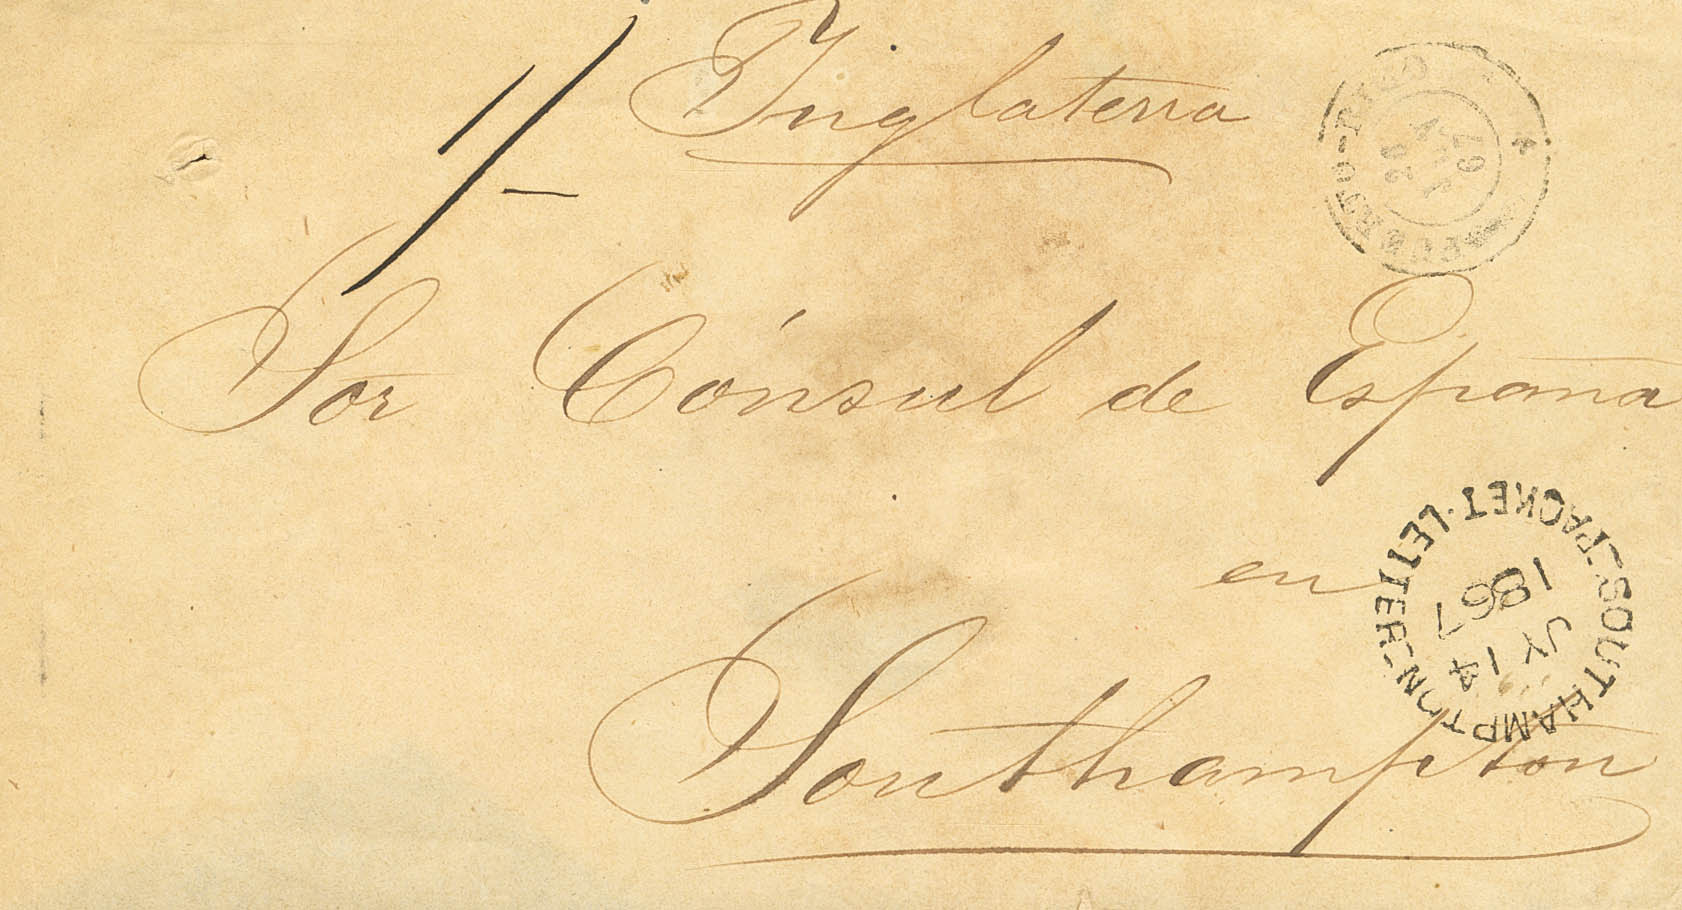 1/-
Inglaterra
PUERTO-RICO
20
67
Sor Cónsul de España
en
Southampton
SOUTHAMPTON-PACKET-LETTER
JY 14
1867